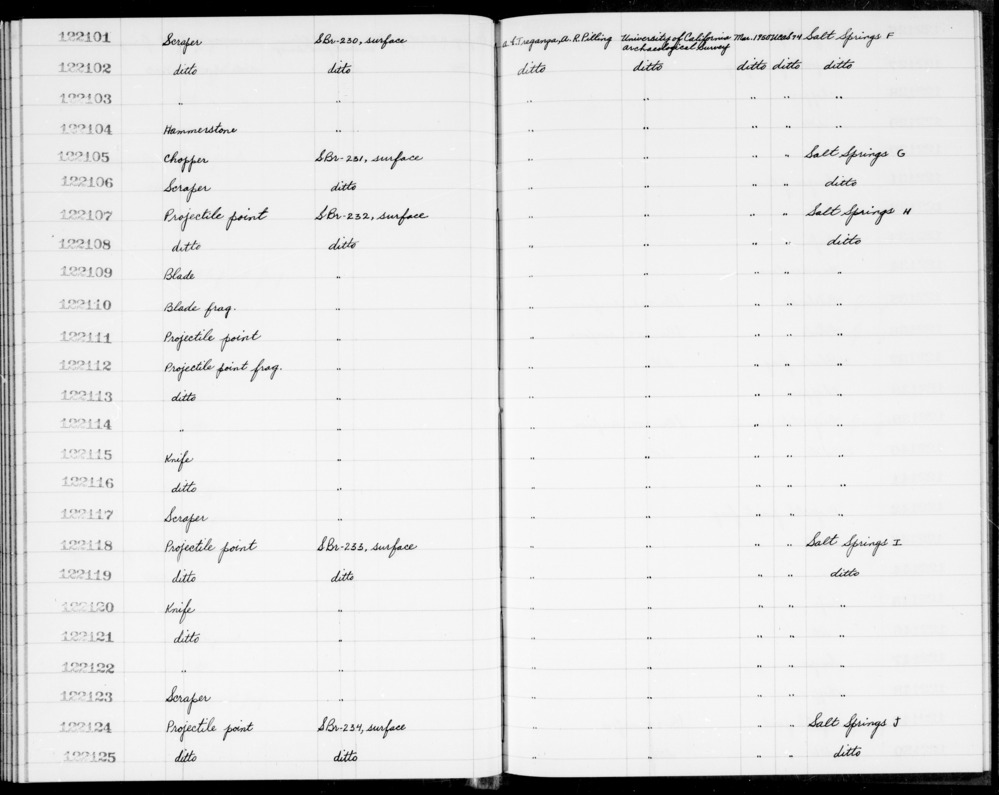 122101 Scraper SBr-230, surface A.E.Treganza, A.R.Pilling University of California Archaeological Survey Mar. 1950 Salt Springs F
122102 ditto ditto ditto ditto ditto ditto ditto
122103 " " " " " " "
122104 Hammerstone " " " " " "
122105 Chopper SBr-231, surface " " " " Salt Springs G
122106 Scraper ditto " " " " ditto
122107 Projectile point SBr-232, surface " " " " Salt Springs H
122108 ditto ditto " " " " ditto
122109 Blade " " " " " "
122110 Blade frag. " " " " " "
122111 Projectile point " " " " " "
122112 Projectile point frag. " " " " " "
122113 ditto " " " " " "
122114 " " " " " " "
122115 Knife " " " " " "
122116 ditto " " " " " "
122117 Scraper " " " " " "
122118 Projectile point SBr-233, surface " " " " Salt Springs I
122119 ditto ditto " " " " ditto
122120 Knife " " " " " "
122121 ditto " " " " " "
122122 " " " " " " "
122123 Scraper " " " " " "
122124 Projectile point SBr-234, surface " " " " Salt Springs J
122125 ditto ditto " " " " ditto